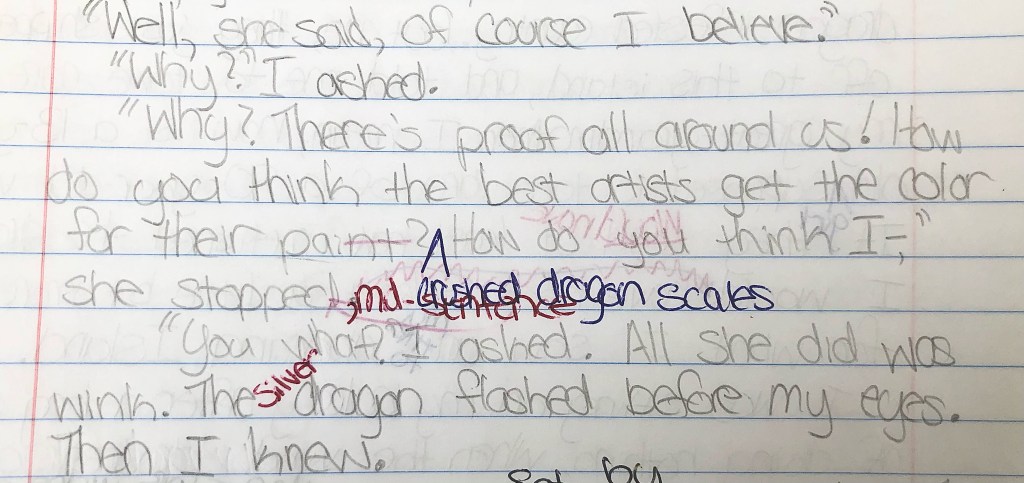 "Well," she said, of course I believe."
"Why?" I asked.
"Why? There's proof all around us! How
do you think the best artists get the color
for their paint? How do you think I-,"
she stopped, mid-sentence crushed dragon scales
"You what?" I asked. All she did was
wink. The silver dragon flashed before my eyes.
Then I knew.
by